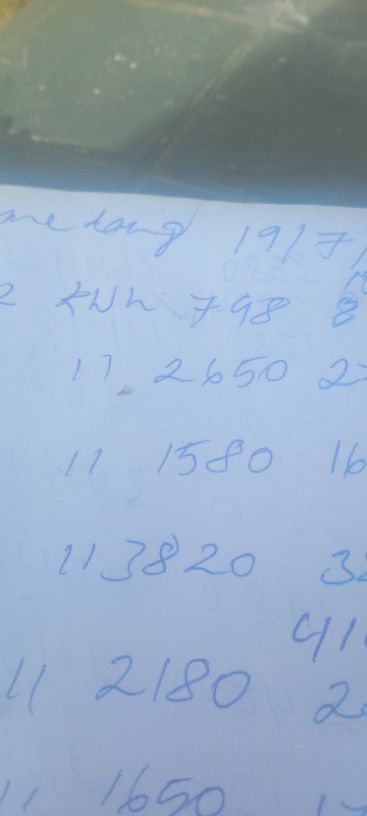 19/7/
kwh 798 8
11 2650 2
11 1580 16
11 3820 3
41
11 2180 2
11 1650 17